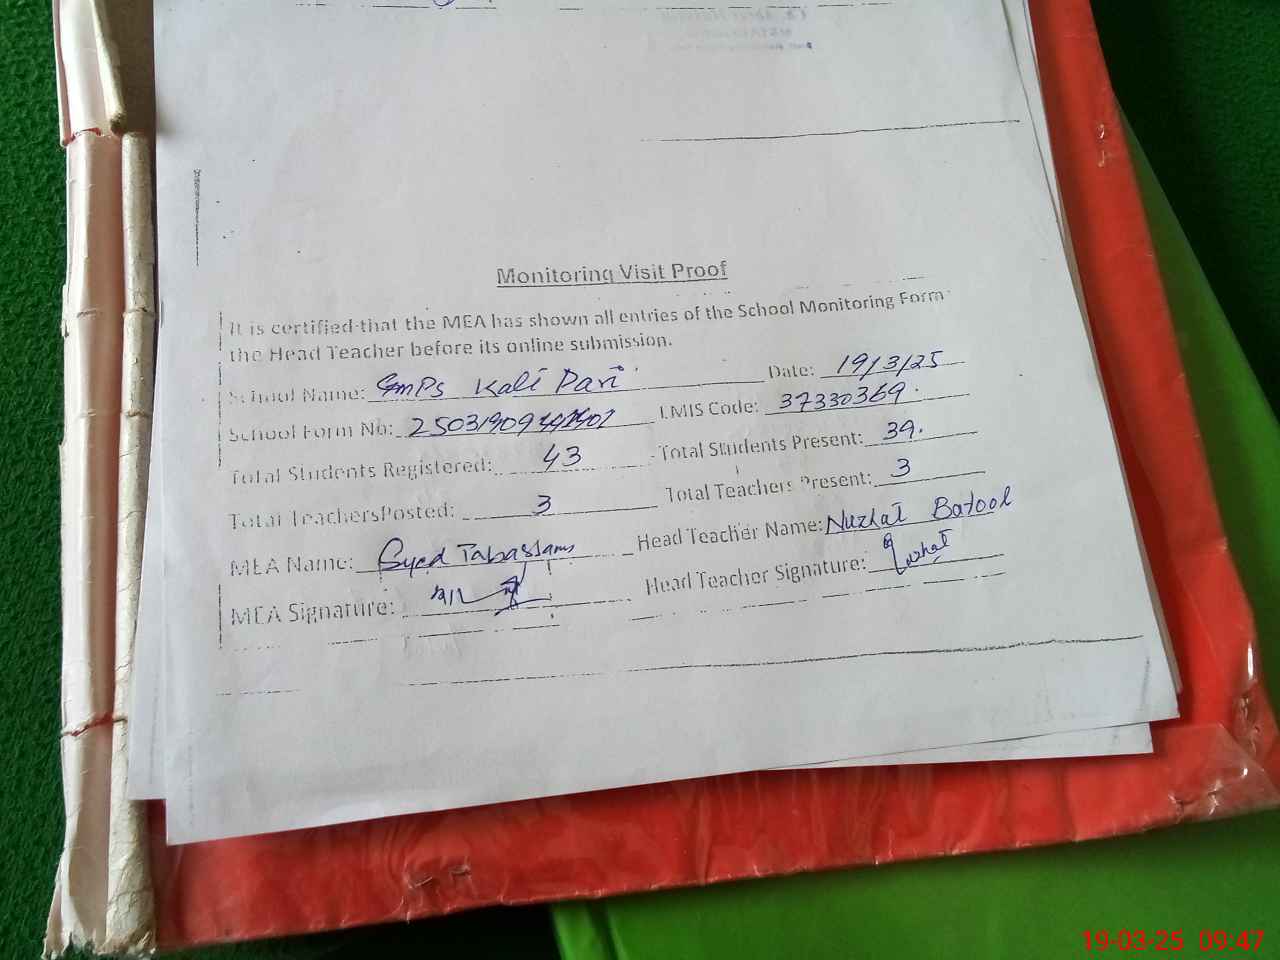 Monitoring Visit Proof
It is certified that the MEA has shown all entries of the School Monitoring Form
the Head Teacher before its online submission.
School Name: GMPS Kali Pari Date: 19/3/25
School Form No: EMIS Code: 37330369
Total Students Registered: 43 Total Students Present: 39.
Total Teachers Posted: 3 Total Teachers Present: 3
MEA Name: Syed Tabassam Head Teacher Name: Nuzhat Batool
MEA Signature: Head Teacher Signature: Nuzhat
19-03-25 09:47